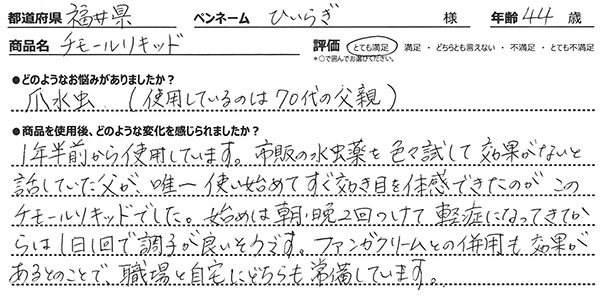 都道府県 福井県 ペンネーム ひいらぎ 様 年齢 44 歳
商品名 チモールリキッド 評価 とても満足 満足 ・ どちらとも言えない ・ 不満足 ・ とても不満足
*○で囲んでお選びください。
●どのようなお悩みがありましたか?
爪水虫 (使用しているのは70代の父親)
●商品を使用後、どのような変化を感じられましたか?
1年半前から使用しています。市販の水虫薬を色々試して効果がないと
話していた父が、唯一使い始めてすぐ効き目を体感できたのがこの
チモールリキッドでした。始めは朝・晩2回つけて軽症になってきてか
らは1日1回で調子が良いそうです。ファンガクリームとの併用も効果が
あるとのことで、職場と自宅にどちらも常備しています。